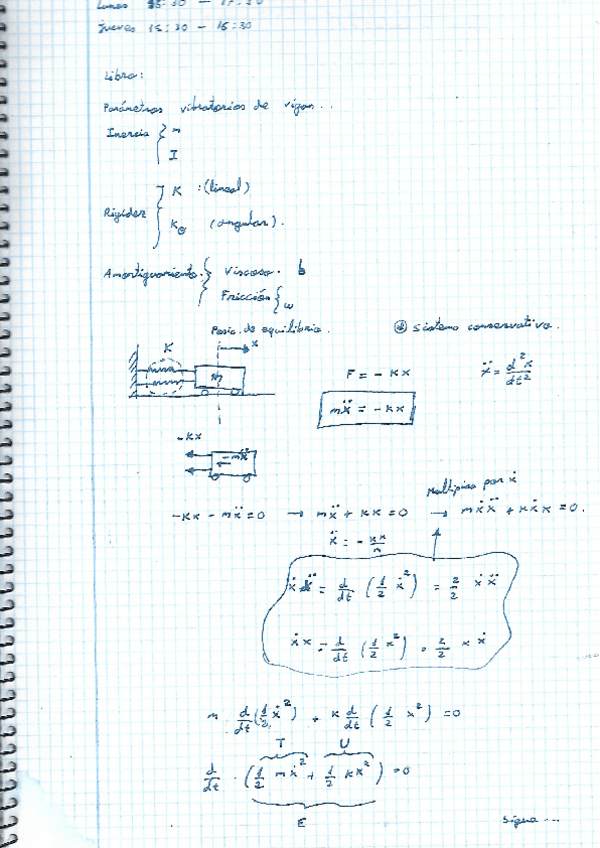 Lunes 15:30 — 17:30
Jueves 15:30 — 16:30
Libro:
Parámetros vibratorios de vigas...
Inercia { m
I
Rigidez { K : (lineal)
K_θ (angular).
Amortiguamiento. { Viscoso. b
Fricción { ω
Posic. de equilibrio.
* Sistema conservativo.
x
K
m
F = - Kx
ẍ = d²x/dt²
mẍ = - Kx
-Kx
-mẍ
Multiplico por ẋ
-Kx - mẍ = 0 → mẍ + Kx = 0 → mẋẍ + Kẋx = 0.
ẍ = - Kx/m
ẋẍ = d/dt (1/2 ẋ²) = 2/2 ẋẍ
ẋx = d/dt (1/2 x²) = 2/2 xẋ
m d/dt (1/2 ẋ²) + K d/dt (1/2 x²) = 0
T U
d/dt · (1/2 mẋ² + 1/2 Kx²) = 0
E
Sigue ...